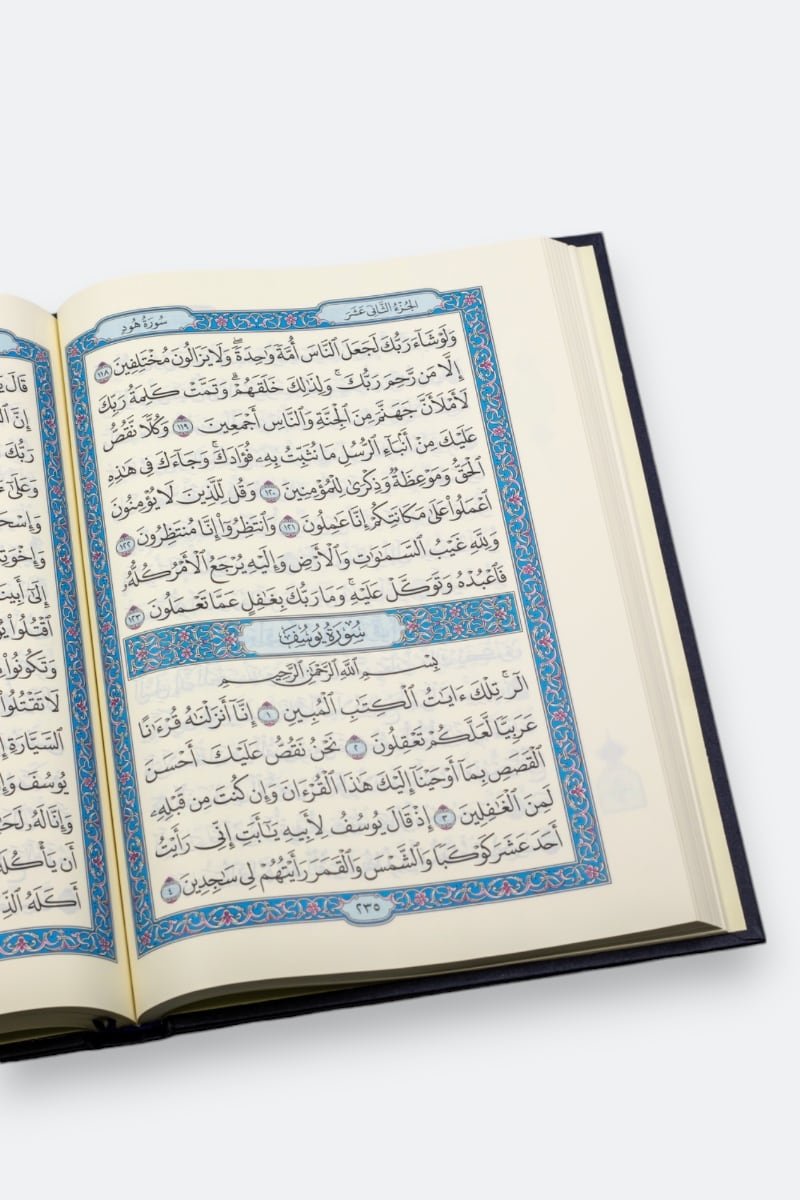 الجزء الثاني عشر
سورة هود
وَلَوْ شَآءَ رَبُّكَ لَجَعَلَ ٱلنَّاسَ أُمَّةً وَٰحِدَةً ۖ وَلَا يَزَالُونَ مُخْتَلِفِينَ ١١٨
إِلَّا مَن رَّحِمَ رَبُّكَ ۚ وَلِذَٰلِكَ خَلَقَهُمْ ۗ وَتَمَّتْ كَلِمَةُ رَبِّكَ
لَأَمْلَأَنَّ جَهَنَّمَ مِنَ ٱلْجِنَّةِ وَٱلنَّاسِ أَجْمَعِينَ ١١٩ وَكُلًّا نَّقُصُّ
عَلَيْكَ مِنْ أَنۢبَآءِ ٱلرُّسُلِ مَا نُثَبِّتُ بِهِۦ فُؤَادَكَ ۚ وَجَآءَكَ فِى هَٰذِهِ
ٱلْحَقُّ وَمَوْعِظَةٌ وَذِكْرَىٰ لِلْمُؤْمِنِينَ ١٢٠ وَقُل لِّلَّذِينَ لَا يُؤْمِنُونَ
ٱعْمَلُوا۟ عَلَىٰ مَكَانَتِكُمْ إِنَّا عَٰمِلُونَ ١٢١ وَٱنتَظِرُوٓا۟ إِنَّا مُنتَظِرُونَ ١٢٢
وَلِلَّهِ غَيْبُ ٱلسَّمَٰوَٰتِ وَٱلْأَرْضِ وَإِلَيْهِ يُرْجَعُ ٱلْأَمْرُ كُلُّهُۥ
فَٱعْبُدْهُ وَتَوَكَّلْ عَلَيْهِ ۚ وَمَا رَبُّكَ بِغَٰفِلٍ عَمَّا تَعْمَلُونَ ١٢٣
سُورَةُ يُوسُفَ
بِسْمِ ٱللَّهِ ٱلرَّحْمَٰنِ ٱلرَّحِيمِ
الٓر ۚ تِلْكَ ءَايَٰتُ ٱلْكِتَٰبِ ٱلْمُبِينِ ١ إِنَّآ أَنزَلْنَٰهُ قُرْءَٰنًا
عَرَبِيًّا لَّعَلَّكُمْ تَعْقِلُونَ ٢ نَحْنُ نَقُصُّ عَلَيْكَ أَحْسَنَ
ٱلْقَصَصِ بِمَآ أَوْحَيْنَآ إِلَيْكَ هَٰذَا ٱلْقُرْءَانَ وَإِن كُنتَ مِن قَبْلِهِۦ
لَمِنَ ٱلْغَٰفِلِينَ ٣ إِذْ قَالَ يُوسُفُ لِأَبِيهِ يَٰٓأَبَتِ إِنِّى رَأَيْتُ
أَحَدَ عَشَرَ كَوْكَبًا وَٱلشَّمْسَ وَٱلْقَمَرَ رَأَيْتُهُمْ لِى سَٰجِدِينَ ٤
٢٣٥
قَالَ
إِنَّ
رَبُّكَ
وَعَلَىٰٓ
وَإِخْوَتِهِ
إِلَىٰٓ أَبِينَا
ٱقْتُلُوا۟
وَتَكُونُوا۟
لَا تَقْتُلُوا۟
ٱلسَّيَّارَةِ
يُوسُفَ
وَإِنَّا لَهُۥ
أَن يَأْكُلَهُ
أَكَلَهُ